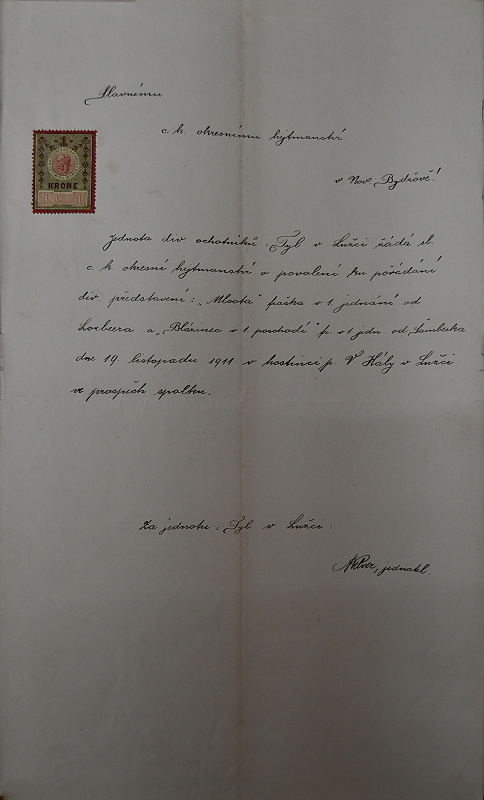 Slavnému
c. k. okresnímu hejtmanství
v Nov. Bydžově!
1
KRONE
Jednota div. ochotníků „Tyl“ v Lužci žádá sl.
c. k. okresní hejtmanství o povolení ku pořádání
div. představení: „Mlsota“ fraška v 1. jednání od
Lorbeera a „Blázinec v 1. poschodí“ fr. v 1 jedn. od Šamberka
dne 19. listopadu 1911 v hostinci p. V. Hály v Lužci
ve prospěch spolku.
Za jednotu „Tyl“ v Lužci:
jednatel.